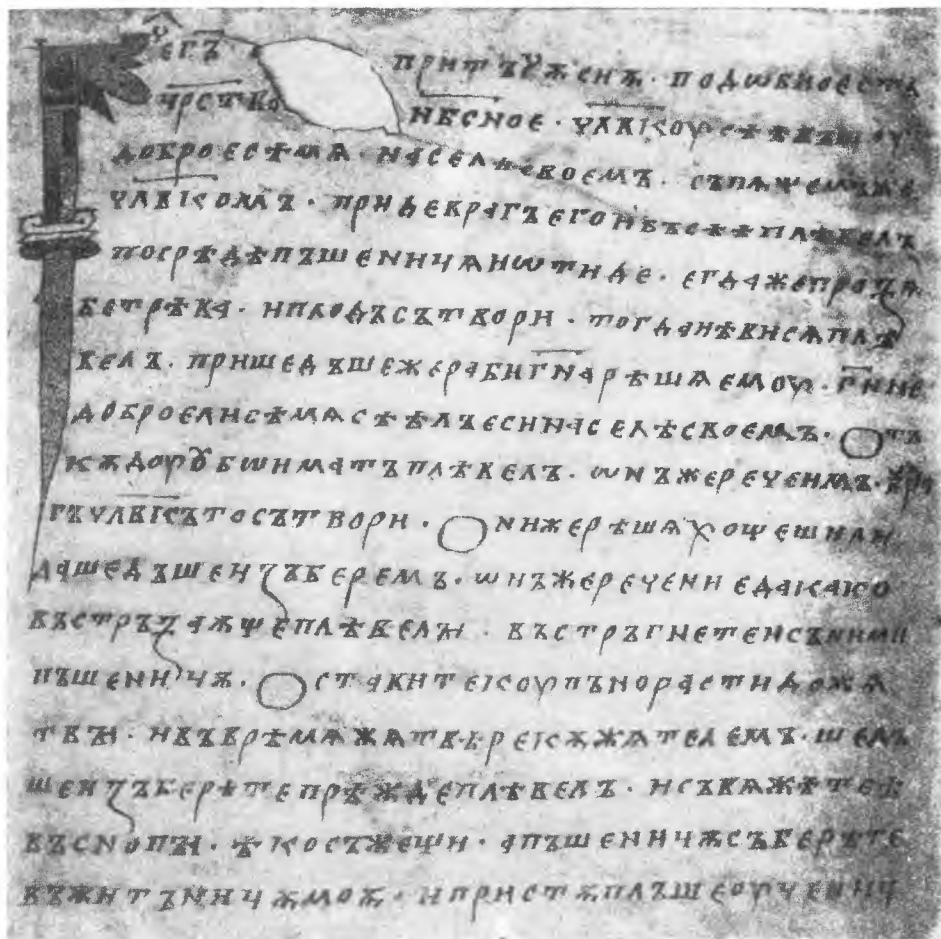 Рече гъ притъчѫ сѭѫ · подѡбноестъ
чрство нбсное · члвкоусѣѣвъшоу
доброесѣмѧ · населѣсвоемъ · съпѧщемъже
члвкомъ · придеврагъегоивъсѣѣплѣвелъ
посрѣдѣпъшеницѧиѡтиде · егдажепрозѧ
бетрѣва · иплодъсътвори · тогдаꙗвисѧплѣ
велъ · пришедъшежерабигнарѣшѧемоу · гине
доброелисѣмѧсѣѣлъесинаселѣсвоемъ · Отъ
кѫдоуꙋбѡиматъплѣвелъ · ѡнъжеречеимъ · вра
гъчлвкътосътвори · Онижерѣшѧхощешили
дашедъшеизъберемъ · ѡнъжеречениедакако
въстръзаѭщеплѣвелꙑ · въстръгнетеисъними
пъшеницѫ · Оставитекоупънорастидожѧ
твꙑ · ивъврѣмѧжѧтвꙑрекѫжѧтелемъ · шедъ
шеизъберѣтепрѣждеплѣвелъ · исъвѧжѣтеѣ
въснопꙑ · ѣкосъжещи · апъшеницѫсъберѣте
въжитъницѫмоѭ · ипристѫплъшеоученици